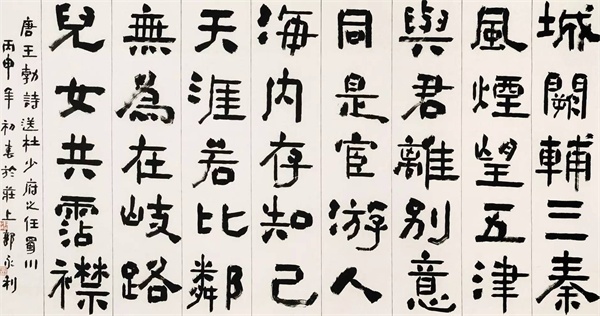 城闕輔三秦
風煙望五津
與君離別意
同是宦游人
海内存知己
天涯若比鄰
無為在岐路
兒女共霑襟
唐王勃詩送杜少府之任蜀川
丙申年初春於莊上郭永利